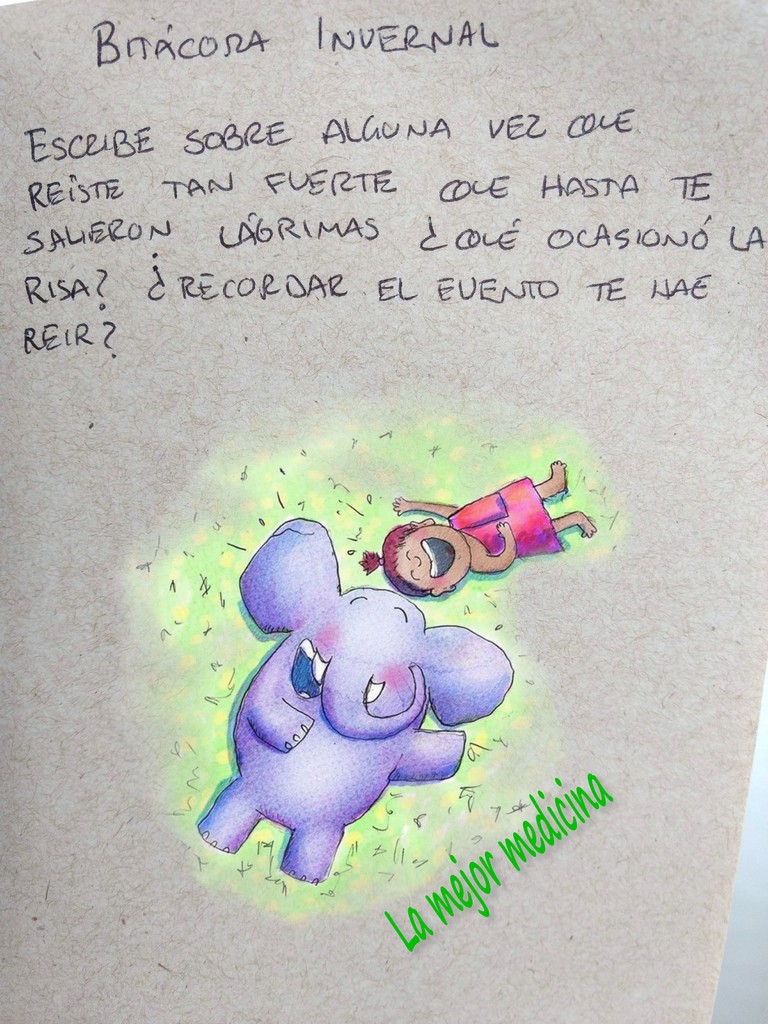 BITÁCORA INVERNAL
ESCRIBE SOBRE ALGUNA VEZ QUE
REÍSTE TAN FUERTE QUE HASTA TE
SALIERON LÁGRIMAS ¿QUÉ OCASIONÓ LA
RISA? ¿RECORDAR EL EVENTO TE HAE
REIR?
La mejor medicina